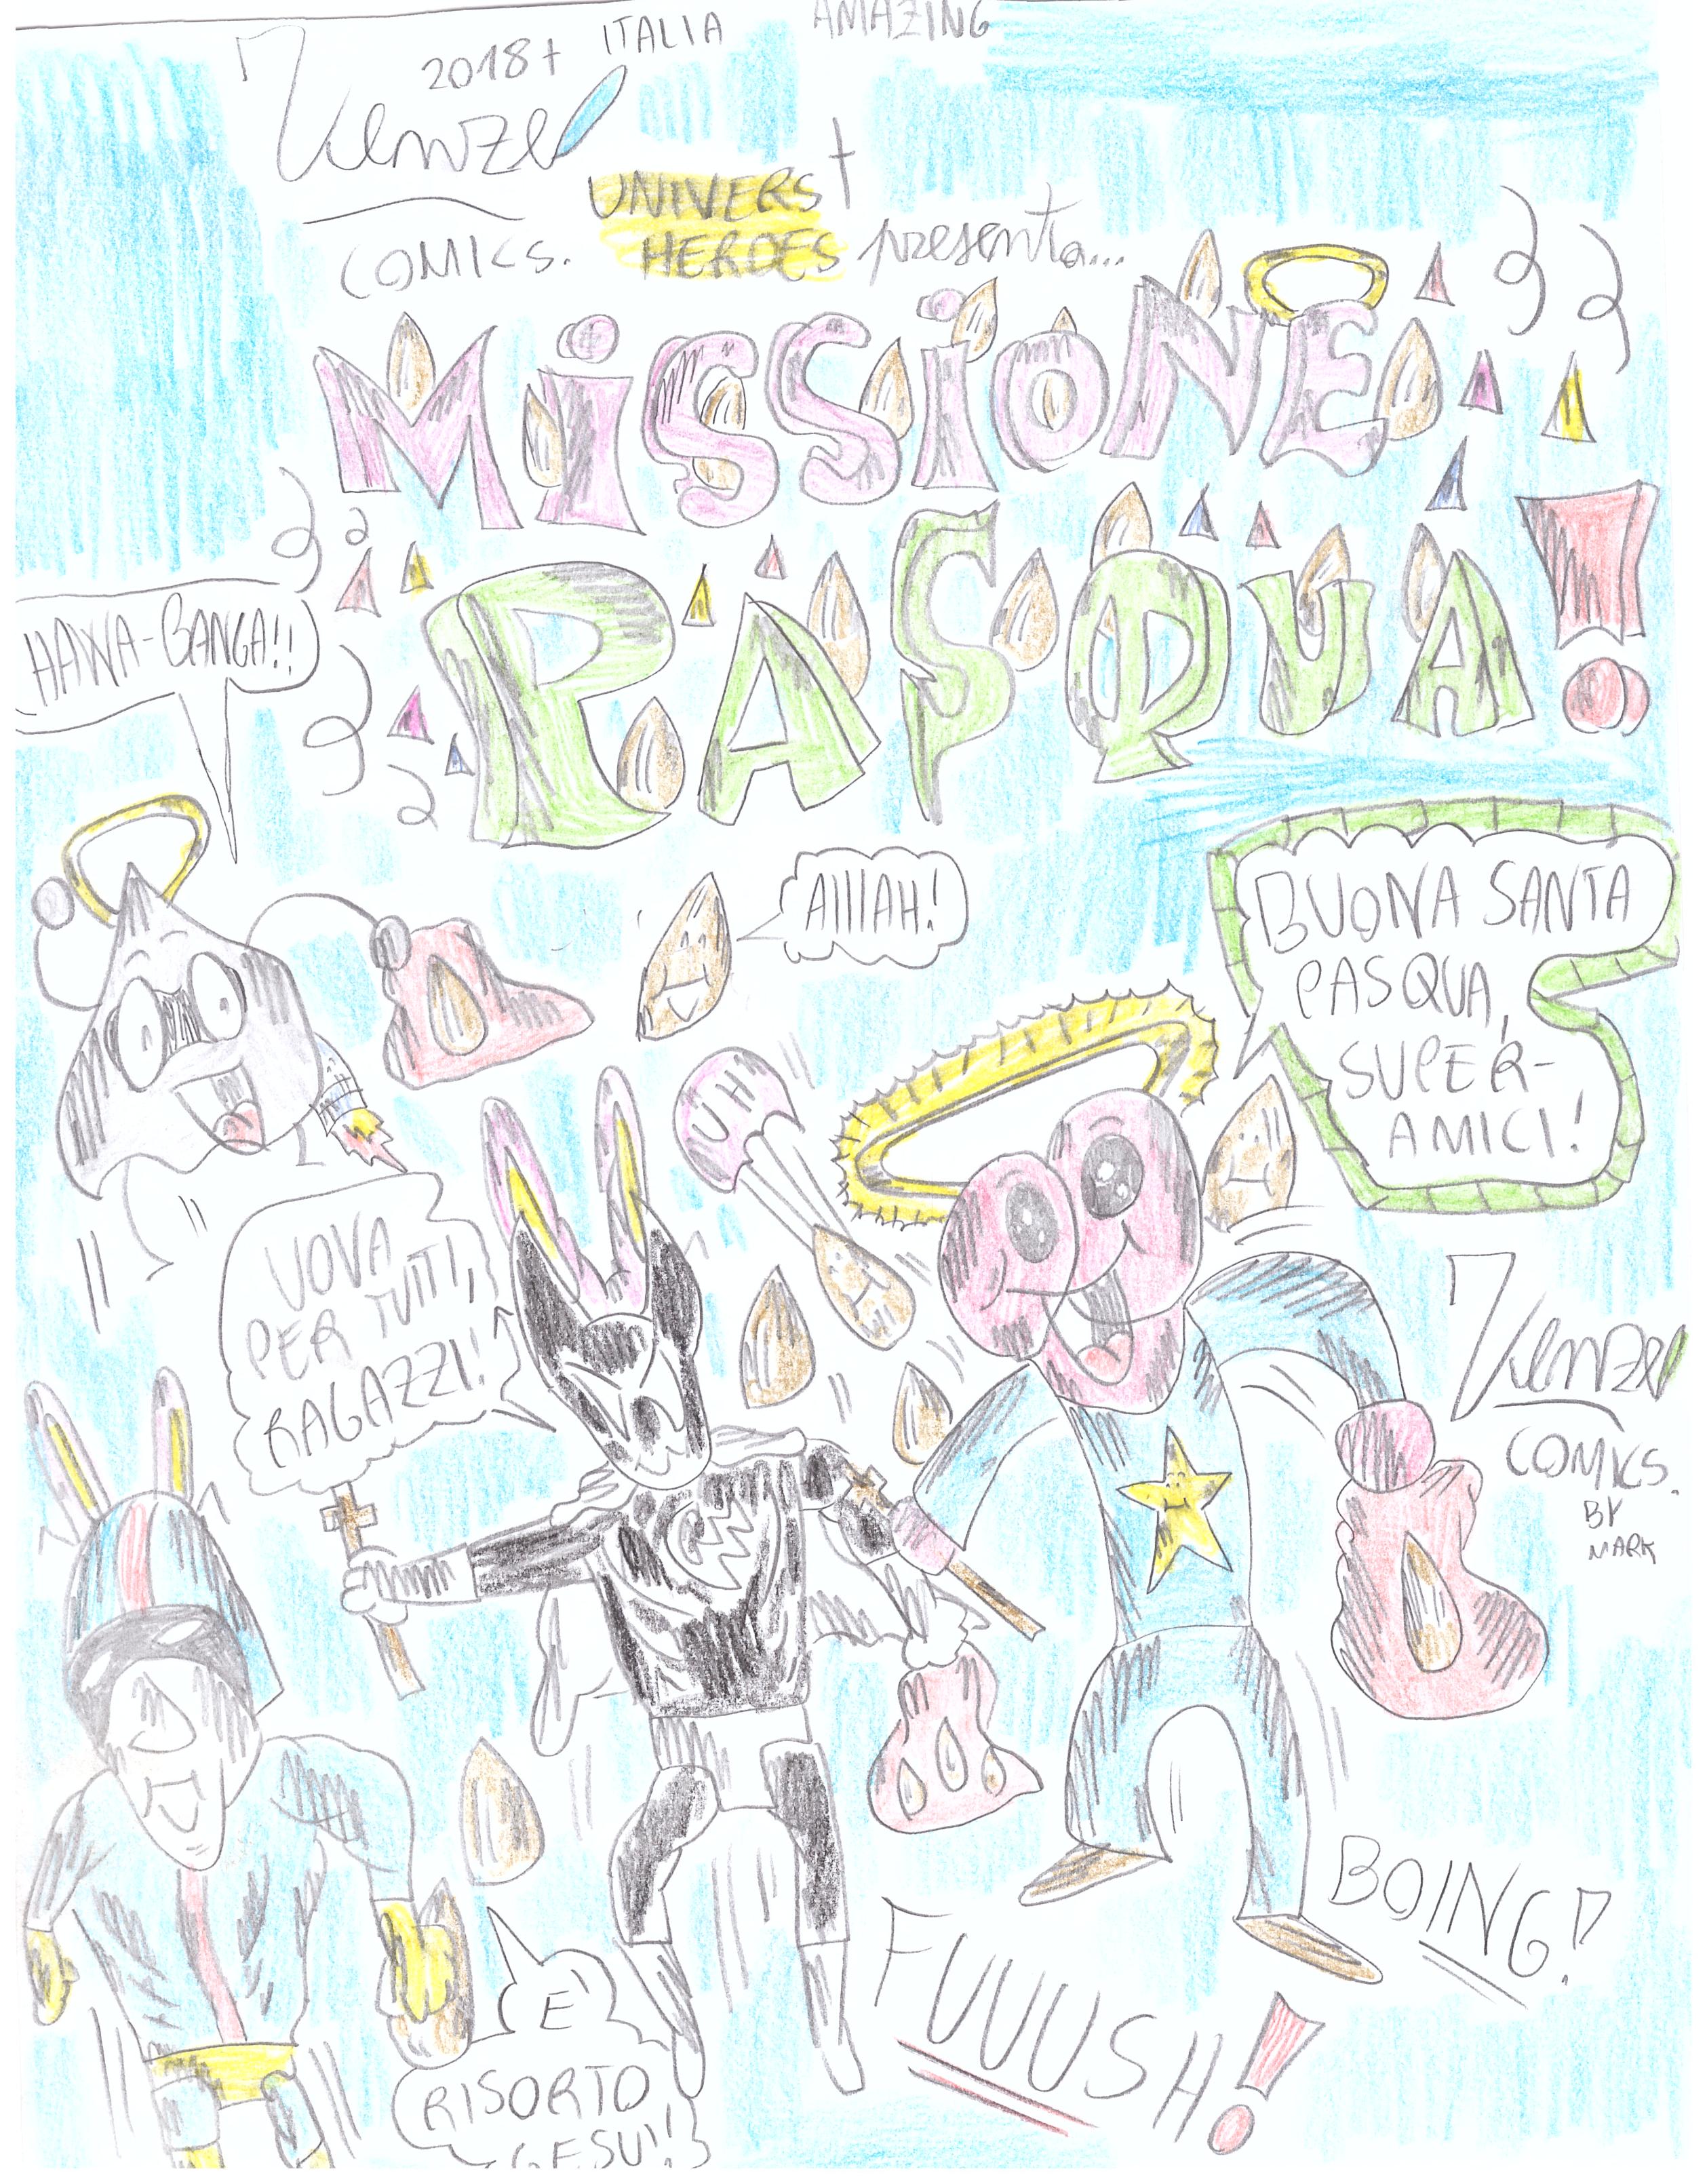 2018+ ITALIA AMAZING
Kenze
COMICS.
UNIVERS
HEROES presenta...
MiSSiONE
PASQUA!
HAWA-BANGA!!
AIIIAH!
BUONA SANTA
PASQUA,
SUPER-
AMICI!
UH
UOVA
PER TUTTI,
RAGAZZI!
Kenze
COMICS.
BY
MARK
BOING!
FUUUSH!
E'
RISORTO
GESU'!!